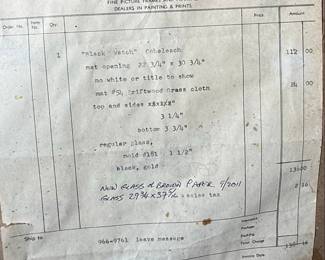 FINE PICTURE FRAMES AND
DEALERS IN PAINTING & PRINTS
Order No. Item No. Qty. Price Amount
1 "Black Watch" Cobeleach 112 00
mat opening 22 3/4" x 30 3/4"
no white or title to show
mat #54, Driftwood Grass cloth 24 00
top and sides
3 1/4"
bottom 3 3/4"
regular glass,
mold #181 1 1/2"
black, gold
13600
NEW GLASS & BROWN PAPER 9/2011
GLASS 29 3/4 x 37 1/2 sales tax 2 16
Ship to 966-9761 leave message
Postage
Total Charge 138 16
Invoice Date